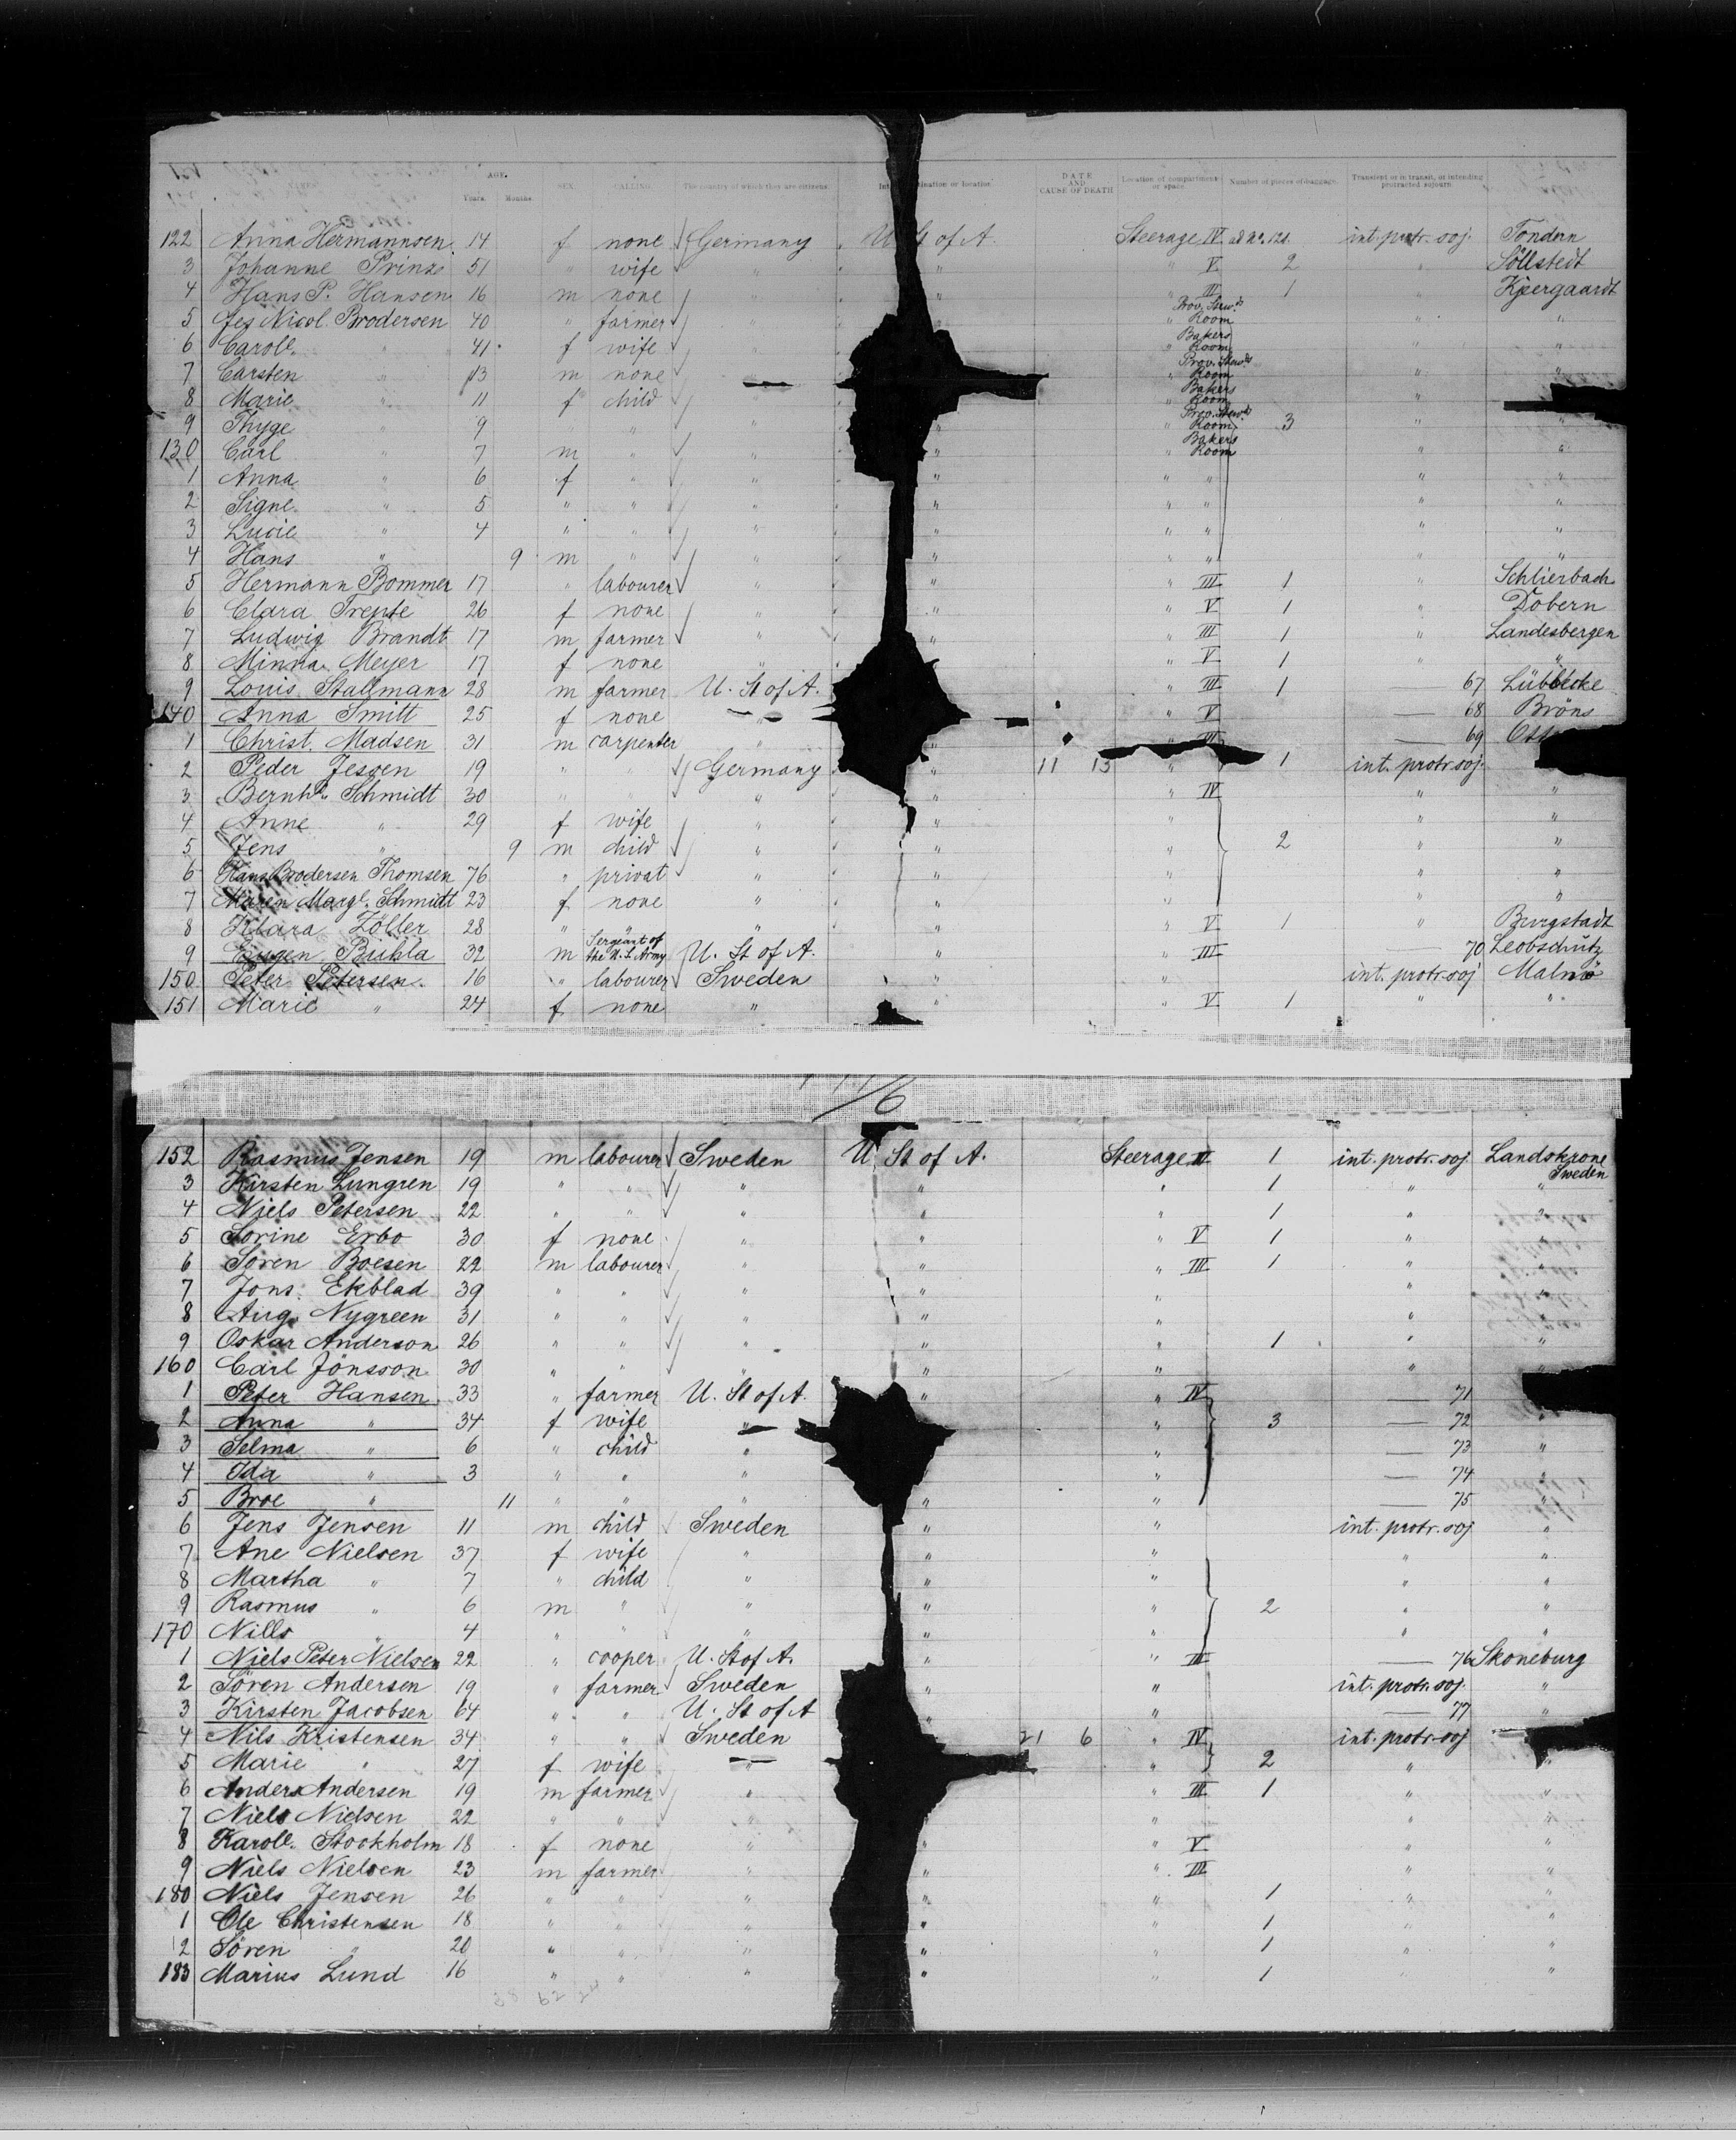 NAMES. AGE. Years. Months. SEX. CALLING. The country of which they are citizens. DATE AND CAUSE OF DEATH Location of compartment or space. Number of pieces of baggage. Transient or in transit, or intending protracted sojourn.
122 Anna Hermannsen 14 f none Germany U St of A. Steerage IV ad No. 121. int. protr. soj. Tondern
3 Johanne Prinz 51 " wife " " " V 2 " Söllstedt
4 Hans P. Hansen 16 m none " " " III 1 " Kjergaardt
5 Jes Nicol. Brodersen 40 " farmer " " Prov. Stwds Room " "
6 Caroll. " 41 f wife " Bakers Room " "
7 Carsten " 13 m none " Prov. Stwds Room " "
8 Marie " 11 f child " Bakers Room "
9 Thyge " 9 " " " " " Prov. Stwds Room 3 " "
130 Carl " 7 m " " " " Bakers Room " "
1 Anna " 6 f " " " " " " "
2 Signe " 5 " " " " " " " "
3 Lucie " 4 " " " " " " " "
4 Hans " 9 m " " " " " " "
5 Hermann Bommer 17 " labourer " " " III 1 " Schlierbach
6 Clara Trepte 26 f none " " " V 1 " Dobern
7 Ludwig Brandt 17 m farmer " " " III 1 " Landesbergen
8 Minna Meyer 17 f none " " " V 1 " "
9 Louis Stallmann 28 m farmer U. St of A. " " III 1 — 67 Lübbecke
140 Anna Smitt 25 f none " " " V — 68 Bröns
1 Christ. Madsen 31 m carpenter " " " — 69
2 Peder Jessen 19 " " Germany " 11 15 " 1 int. protr. soj.
3 Bernhd. Schmidt 30 " " " " " IV " "
4 Anne " 29 f wife " " " " "
5 Jens " 9 m child " " " 2 " "
6 Hans Brodersen Thomsen 76 " privat " " " " "
7 Maren Margt. Schmidt 23 f none " " " " "
8 Klara Zöller 28 " " " " " V 1 " Burgstadt
9 Eugen Buhla 32 m Sergeant of the U. S. Army U. St of A. " " III — 70 Leobschütz
150 Peter Petersen 16 " labourer Sweden " " int. protr. soj Malmö
151 Marie " 24 f none " " " V 1 " "
152 Rasmus Jensen 19 m labourer Sweden U St of A. Steerage 1 int. protr. soj. Landskrone Sweden
3 Kirsten Lungren 19 " " " " " 1 " "
4 Niels Petersen 22 " " " " " 1 " "
5 Sorine Erbo 30 f none " " " V 1 " "
6 Soren Boesen 22 m labourer " " " III 1 " "
7 Jons. Ekblad 39 " " " " " " "
8 Aug. Nygreen 31 " " " " " " "
9 Oskar Anderson 26 " " " " " 1 " "
160 Carl Jönsson 30 " " " " " " "
1 Peter Hansen 33 " farmer U. St of A. " " IV — 71
2 Anna " 34 f wife " " 3 — 72 "
3 Selma " 6 " child " " — 73 "
4 Ida " 3 " " " " — 74 "
5 Broe " 11 " " " " " — 75 "
6 Jens Jensen 11 m child Sweden " " int. protr. soj "
7 Ane Nielsen 37 f wife " " " " "
8 Martha " 7 " child " " " " "
9 Rasmus " 6 m " " " " 2 " "
170 Nills " 4 " " " " " " "
1 Niels Peter Nielsen 22 " cooper U. St of A. " " III — 76 Skoneburg
2 Sören Andersen 19 " farmer Sweden " " int. protr. soj. "
3 Kirsten Jacobsen 64 " " U. St of A " " — 77
4 Nils Kristensen 34 " " Sweden 21 6 " IV int. protr. soj
5 Marie " 27 f wife " " 2 " "
6 Anders Andersen 19 m farmer " " III 1 " "
7 Niels Nielsen 22 " " " " " "
8 Karoll. Stockholm 18 f none " " " V " "
9 Niels Nielsen 23 m farmer " " " III " "
180 Niels Jensen 26 " " " " " 1 " "
1 Ole Christensen 18 " " " " " 1 " "
2 Sören " 20 " " " " " 1 " "
183 Marius Lund 16 " " " " " 1 " "